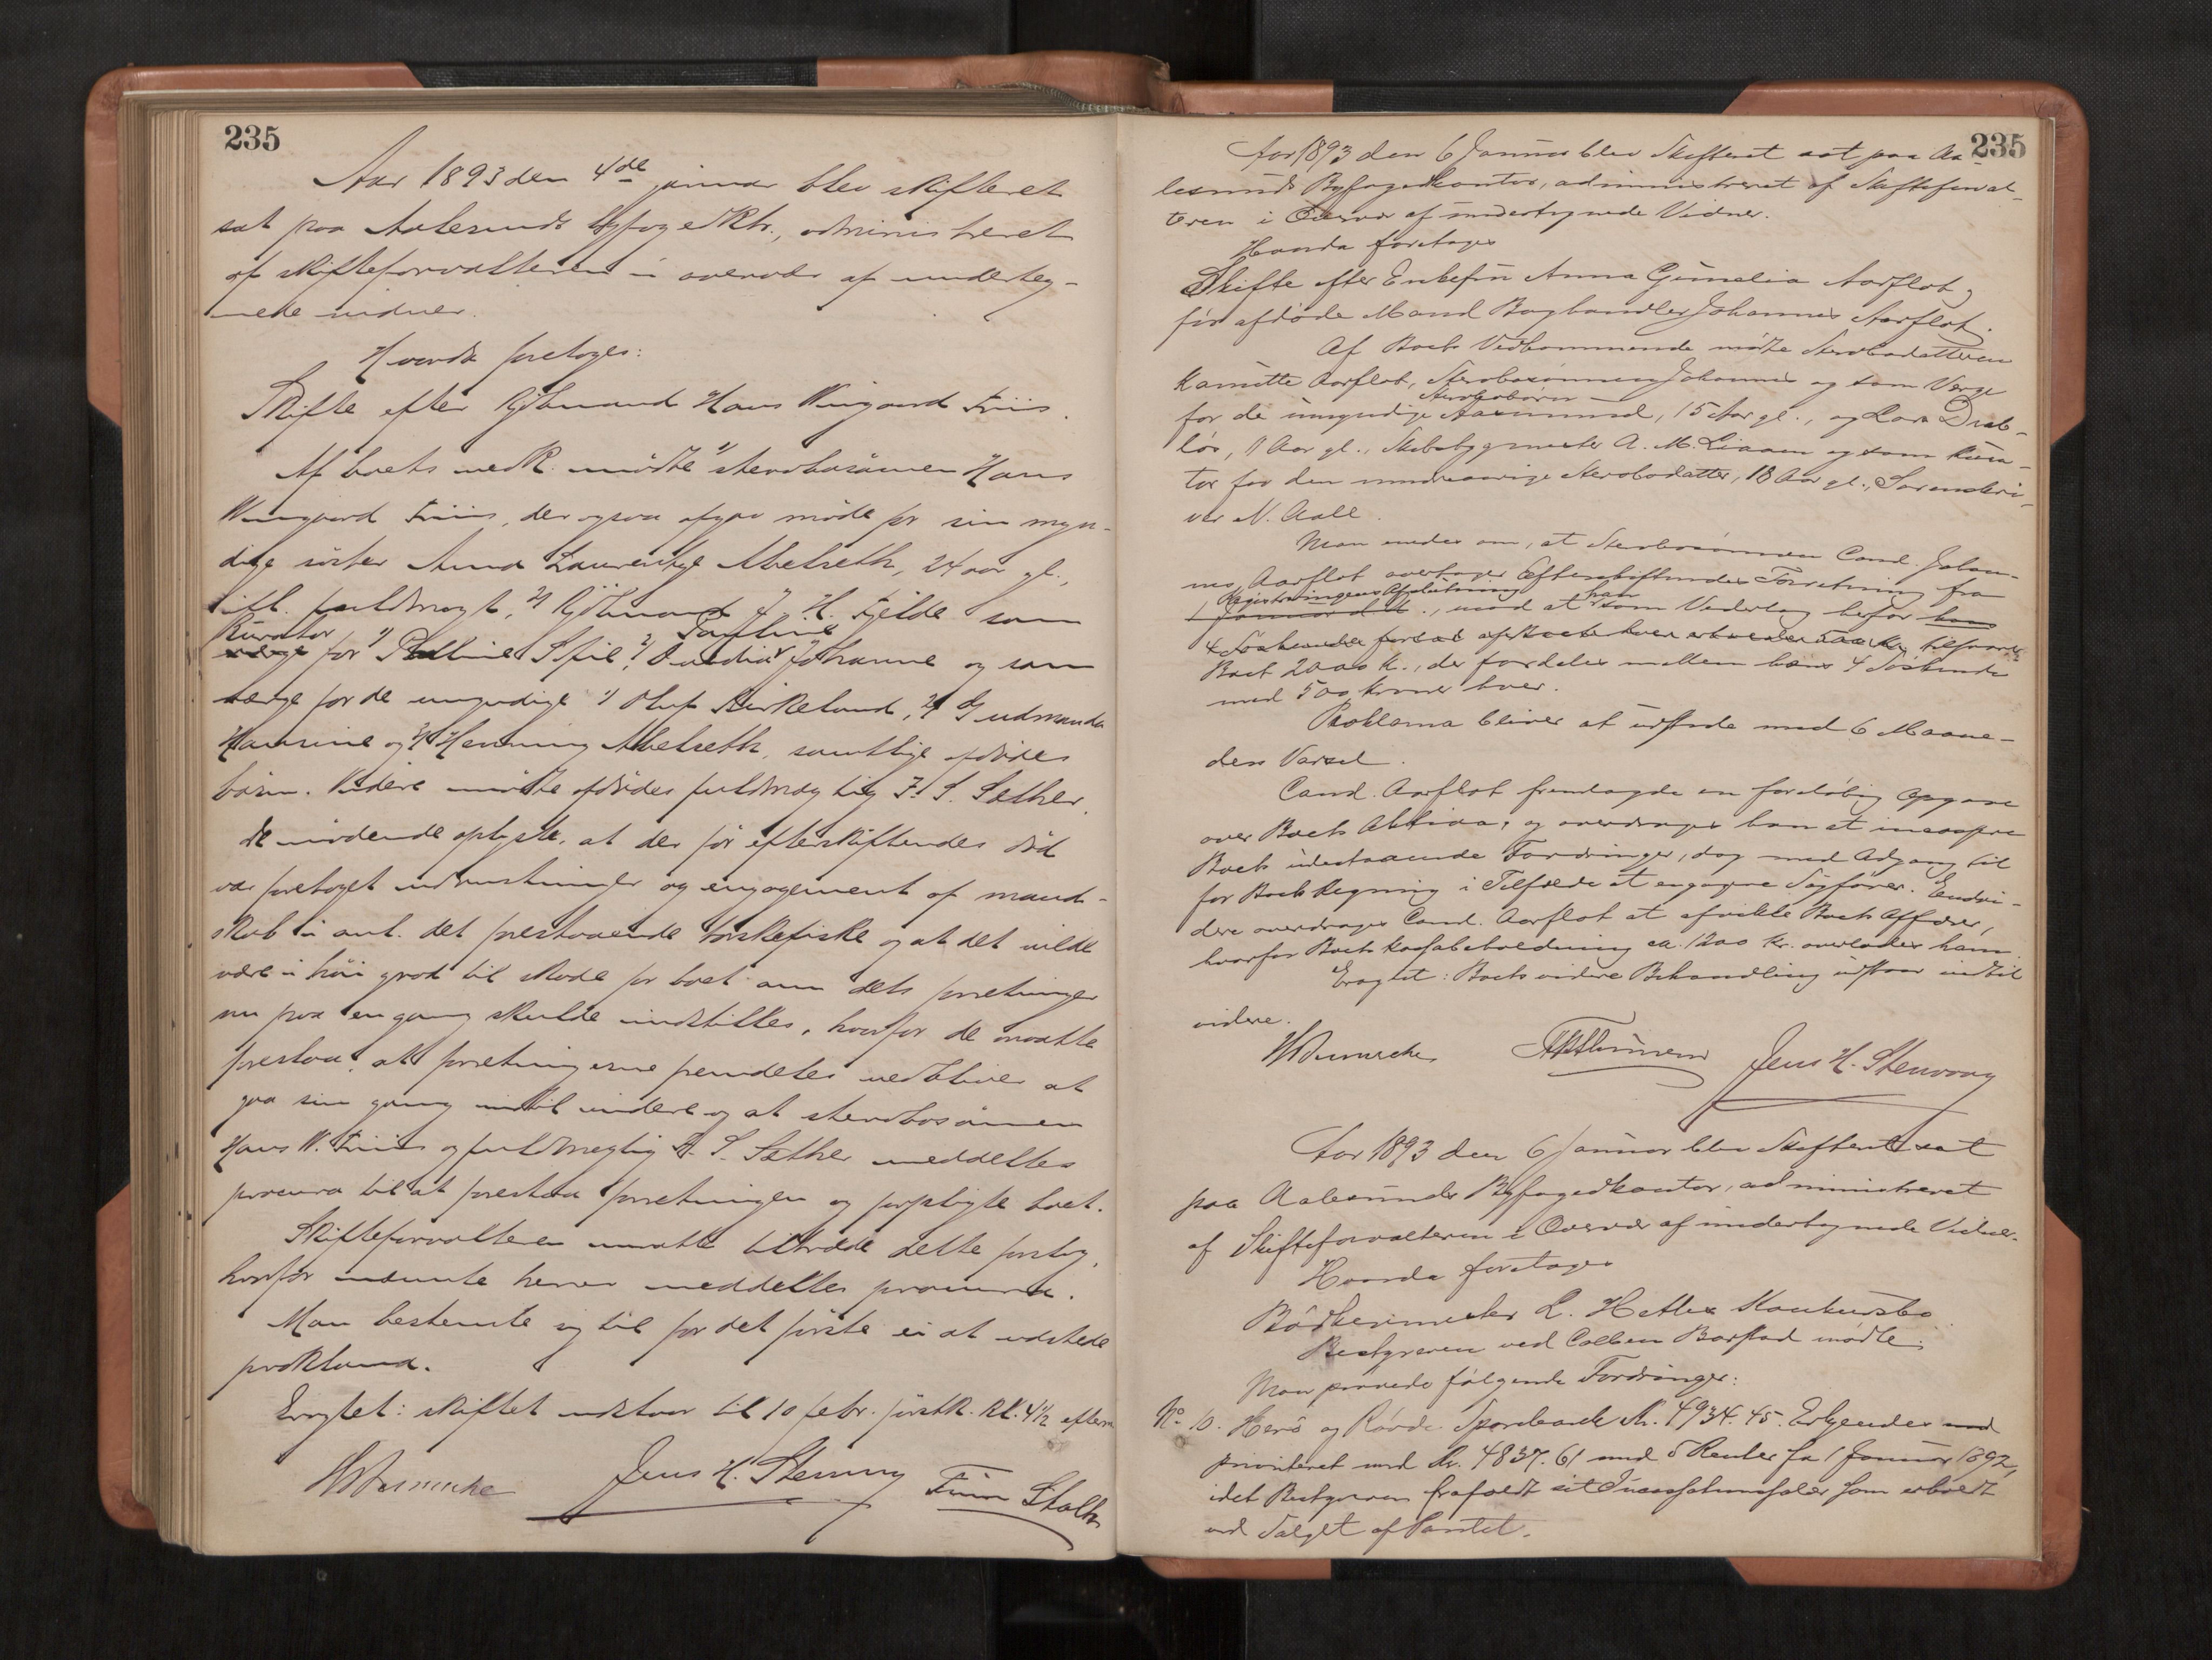 235
Aar 1893 den 4de januar blev skifteret
sat paa Aalesunds byfogedktr., administreret
af skifteforvalteren i overvær af underteg-
nede vidner.
Hvorda foretoges:
Skifte efter Kjøbmand Hans Wingaard Friis.
Af boets vedk. mødte 1) sterbosønnen Hans
Wingaard Friis, der ogsaa afgav møde for sin myn-
dige søster Anna Laurentze Abelseth, 24 aar gl.,
ifl. fuldmagt, 2) Kjøbmand J. H. Fjelde som
Kurator Pauline
verge for 1) Pauline Sofie, 2) Johanne og som
verge for de umyndige 1) Oluf Birkeland, 2) Gudmunda
Hansine og 3) Henning Abelseth, samtlige afdødes
børn. Videre mødte afdødes fuldmægtig F. S. Sæther.
De mødende oplyste, at der før efterskiftendes død
var foretaget udrustninger og engagement af mand-
skab i anl. det forestaaende torskefiske og at det vilde
være i høi grad til skade for boet om dets forretninger
nu paa en gang skulde indstilles, hvorfor de maatte
foreslaa, at forretningerne fremdeles vedbliver at
gaa sin gang indtil videre og at sterbosønnen
Hans W. Friis og fuldmægtig F. S. Sæther meddeltes
procura til at forestaa forretningen og forpligte boet.
Skifteforvalteren maatte tiltræde dette forslag,
hvorfor nævnte herrer meddeltes procura.
Man bestemte sig til for det første ei at udstede
proklama.
Eragtet: skiftet udstaar til 10 febr. førstk. kl. 4 1/2 efterm
Jens H. Stenvaag Finn
235
Aar 1893 den 6 Januar blev Skifteret sat paa Aa-
lesunds Byfogedkontor, administreret af Skifteforval-
teren i Overvær af undertegnede Vidner.
Hvorda foretoges
Skifte efter Enkefru Anna Gunelia Aarflot og
før afdøde Mand Boghandler Johannes Aarflot.
Af Boets Vedkommende mødte Sterbodatteren
Kamitte Aarflot, Sterbosønnen Johannes og som Verge
Sterbobørn
for de umyndige Aasmund, 15 Aar gl., og Lars
11 Aar gl., Skibsbygmester A. M. Liaaen og som Kura-
tor for den mindreaarige Sterbodatter, 18 Aar gl., Sorenskri-
ver N. Aall.
Man enedes om, at Sterbosønnen Cand. Johan-
nes Aarflot overtager Efterskiftendes Forretning fra
Registreringens Afslutning han
1 Januar d.A., mod at som Vederlag herfor hans
4 Søskende tilsvarer
Boet 2000 K., der fordeles mellem hans 4 Søskende
med 500 Kroner hver.
Proklama bliver at udstede med 6 Maane-
ders Varsel.
Cand. Aarflot fremlagde en foreløbig Opgave
over Boets Aktiva, og overdroges ham at incassere
Boets udestaaende Fordringer, dog med Adgang til
for Boets Regning i Tilfælde at engagere Sagfører. Endvi-
dere overdroges Cand. Aarflot at afvikle Boets Affærer,
hvorfor Boets Kassabeholdning ca. 1200 Kr. overlodes ham.
Eragtet: Boets videre Behandling udstaar indtil
videre.
Jens H. Stenvaag
Aar 1893 den 6 Januar blev Skifteret sat
paa Aalesunds Byfogedkontor, administreret
af Skifteforvalteren i Overvær af undertegnede Vidner.
Hvorda foretoges
Bødkermester L. Konkursbo.
Bestyreren ved Colben Barstad mødte.
Man prøvede følgende Fordringer:
No 10. Herø og Røvde Sparebank Kr. 4934.45. Erkjendes med
prioriteret med Kr. 4837.61 med 5 Renter fra 1 Januar 1892,
idet Bestyreren frafaldt sit Incassationssalær som erholdt
ved Salget af Pantet.